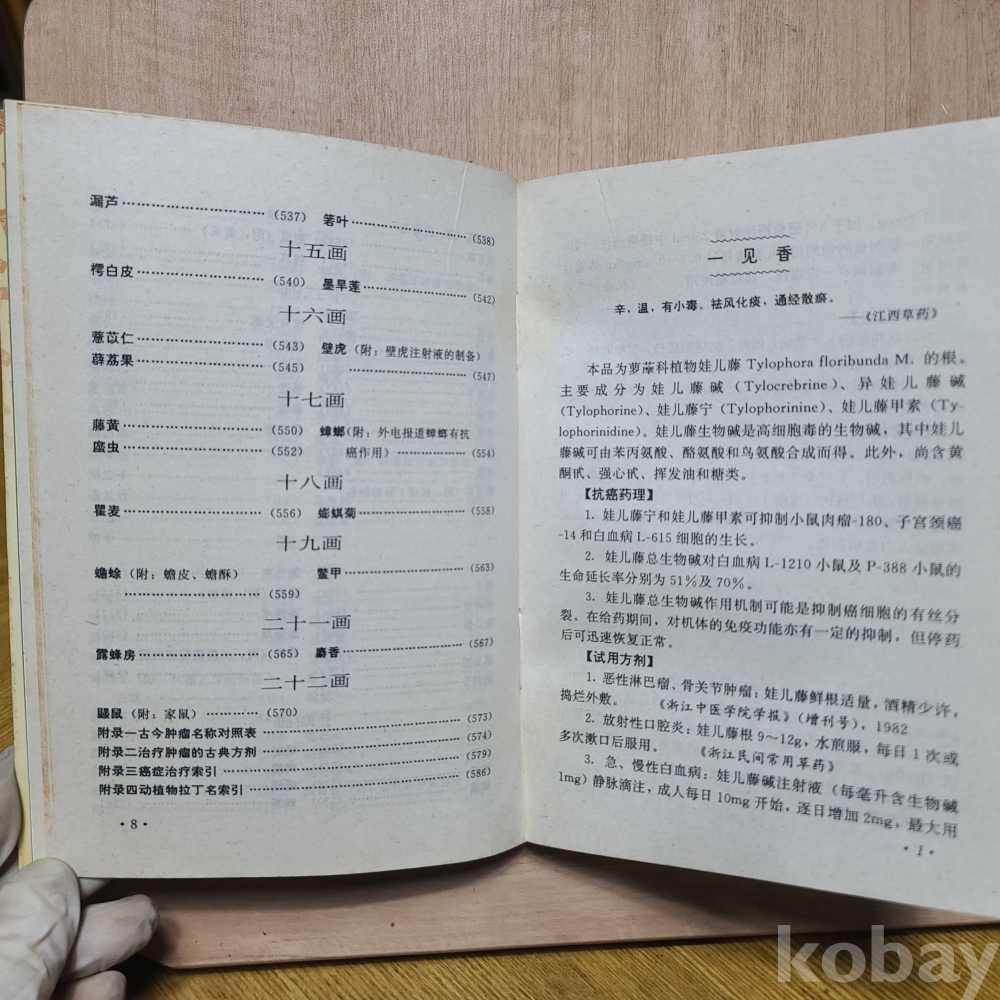 漏芦……………………………(537) 箬叶……………………………(538)
十五画
樗白皮……………………………(540) 墨旱莲……………………………(542)
十六画
薏苡仁……………………………(543) 壁虎(附：壁虎注射液的制备)
薜荔果……………………………(545) ……………………………(547)
十七画
藤黄……………………………(550) 蟑螂(附：外电报道蟑螂有抗
䗪虫……………………………(552) 癌作用)……………………(554)
十八画
瞿麦……………………………(556) 蟛蜞菊……………………………(558)
十九画
蟾蜍(附：蟾皮、蟾酥) 鳖甲……………………………(563)
……………………………(559)
二十一画
露蜂房……………………………(565) 麝香……………………………(567)
二十二画
鼹鼠(附：家鼠)………………(570)
附录一古今肿瘤名称对照表……………………………(573)
附录二治疗肿瘤的古典方剂……………………………(574)
附录三癌症治疗索引……………………………(579)
附录四动植物拉丁名索引……………………………(586)
·8·
一见香
辛，温，有小毒。祛风化痰，通经散瘀。
——《江西草药》
本品为萝藦科植物娃儿藤 Tylophora floribunda M. 的根。
主要成分为娃儿藤碱(Tylocrebrine)、异娃儿藤碱
(Tylophorine)、娃儿藤宁(Tylophorinine)、娃儿藤甲素(Ty-
lophorinidine)。娃儿藤生物碱是高细胞毒的生物碱，其中娃儿
藤碱可由苯丙氨酸、酪氨酸和鸟氨酸合成而得。此外，尚含黄
酮甙、强心甙、挥发油和糖类。
【抗癌药理】
1. 娃儿藤宁和娃儿藤甲素可抑制小鼠肉瘤-180、子宫颈癌
-14和白血病L-615细胞的生长。
2. 娃儿藤总生物碱对白血病L-1210小鼠及P-388小鼠的
生命延长率分别为51%及70%。
3. 娃儿藤总生物碱作用机制可能是抑制癌细胞的有丝分
裂。在给药期间，对机体的免疫功能亦有一定的抑制，但停药
后可迅速恢复正常。
【试用方剂】
1. 恶性淋巴瘤、骨关节肿瘤：娃儿藤鲜根适量，酒精少许，
捣烂外敷。 《浙江中医学院学报》(增刊号)，1982
2. 放射性口腔炎：娃儿藤根9～12g，水煎服，每日1次或
多次漱口后服用。 《浙江民间常用草药》
3. 急、慢性白血病：娃儿藤碱注射液(每毫升含生物碱
1mg)静脉滴注，成人每日10mg开始，逐日增加2mg，最大用
·1·
kobay